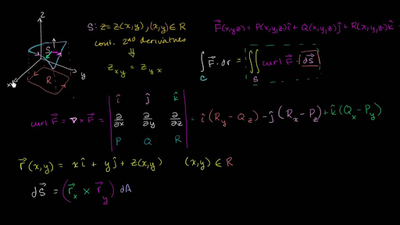 Z
S
R
x
y
S: z = z(x,y), (x,y) ∈ R
cont. 2nd derivatives
z_xy = z_yx
F(x,y,z) = P(x,y,z)î + Q(x,y,z)ĵ + R(x,y,z)k̂
∫_C F · dr = ∬_S curl F · dS
curl F = ∇ × F = | î ĵ k̂ | = î(R_y − Q_z) − ĵ(R_x − P_z) + k̂(Q_x − P_y)
∂/∂x ∂/∂y ∂/∂z
P Q R
r(x,y) = xî + yĵ + z(x,y) (x,y) ∈ R
dS = (r_x × r_y) dA